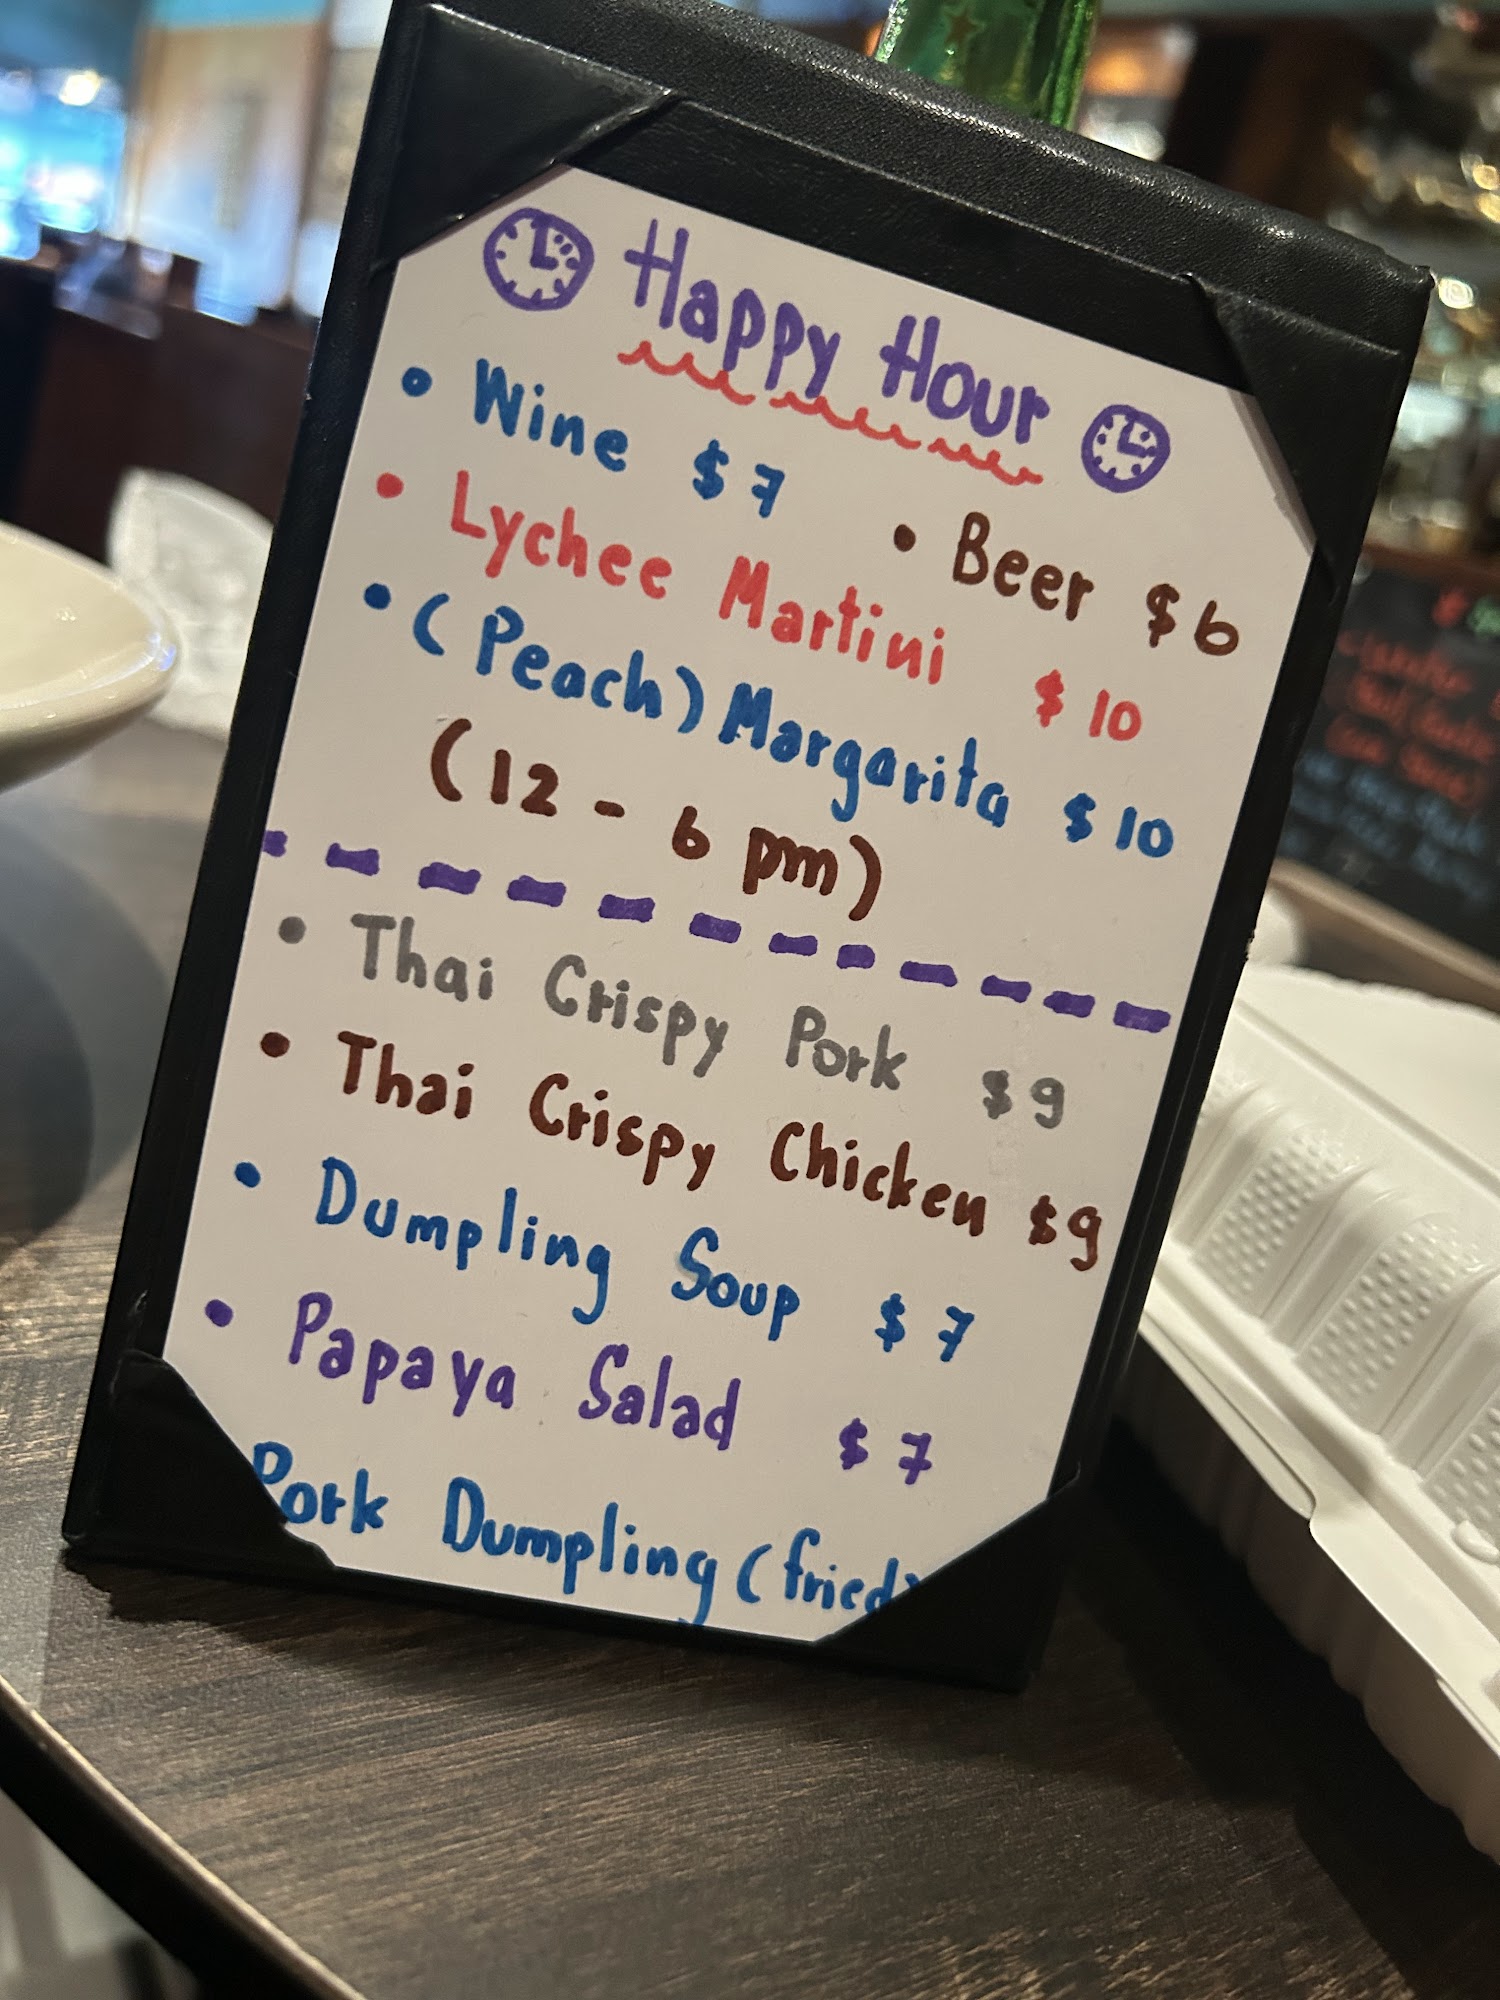 Happy Hour
• Wine $7
• Beer $6
• Lychee Martini $10
• (Peach) Margarita $10
(12 - 6 pm)
• Thai Crispy Pork $9
• Thai Crispy Chicken $9
• Dumpling Soup $7
• Papaya Salad $7
Pork Dumpling (fried)